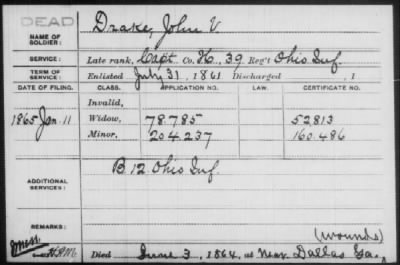 DEAD
Drake, John V.
NAME OF SOLDIER:
SERVICE: Late rank, Capt. Co. H., 39 Reg't Ohio Inf.
TERM OF SERVICE: Enlisted July 31, 1861 Discharged , 1
DATE OF FILING. CLASS. APPLICATION NO. LAW. CERTIFICATE NO.
Invalid,
1865 Jan. 11 Widow, 78.785 52813
Minor, 204.237 160.486
ADDITIONAL SERVICES: B 12 Ohio Inf.
REMARKS: (wounds)
Died June 3, 1864, at near Dallas Ga.,